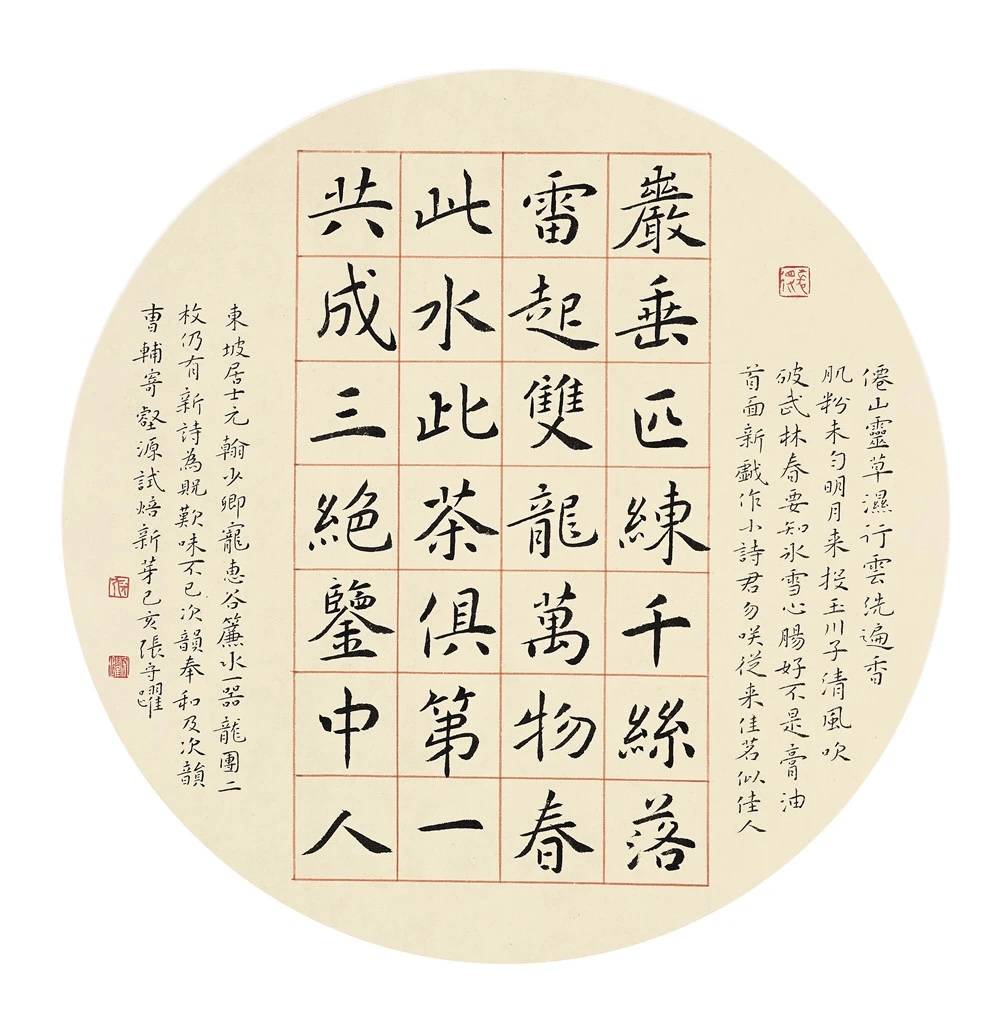 僊山靈草濕行雲洗遍香
肌粉未勻明月来投玉川子清風吹
破武林春要知冰雪心腸好不是膏油
首面新戲作小詩君勿咲從来佳茗似佳人
巖垂匹練千絲落
雷起雙龍萬物春
此水此茶俱第一
共成三絕鑒中人
東坡居士元翰少卿寵惠谷簾水一器龍團二
枚仍有新詩為貺歎味不已次韻奉和及次韻
曹輔寄壑源試焙新芽己亥張守躍